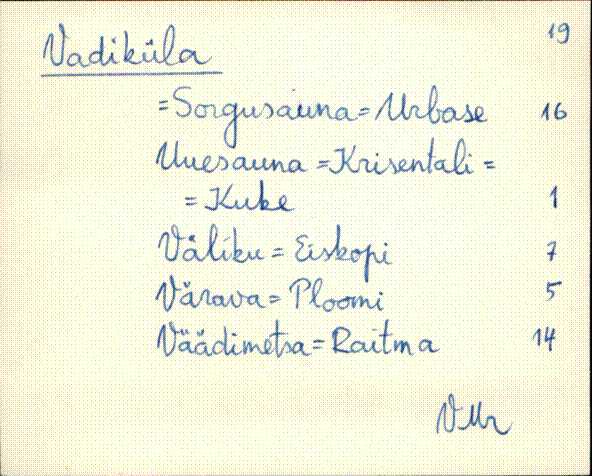 19
Vadiküla
=Sorgusauna=Urbase 16
Uuesauna =Krisentali =
= Kuke 1
Väliku = Eiskopi 7
Värava = Ploomi 5
Väädimetsa = Raitma 14
VMr